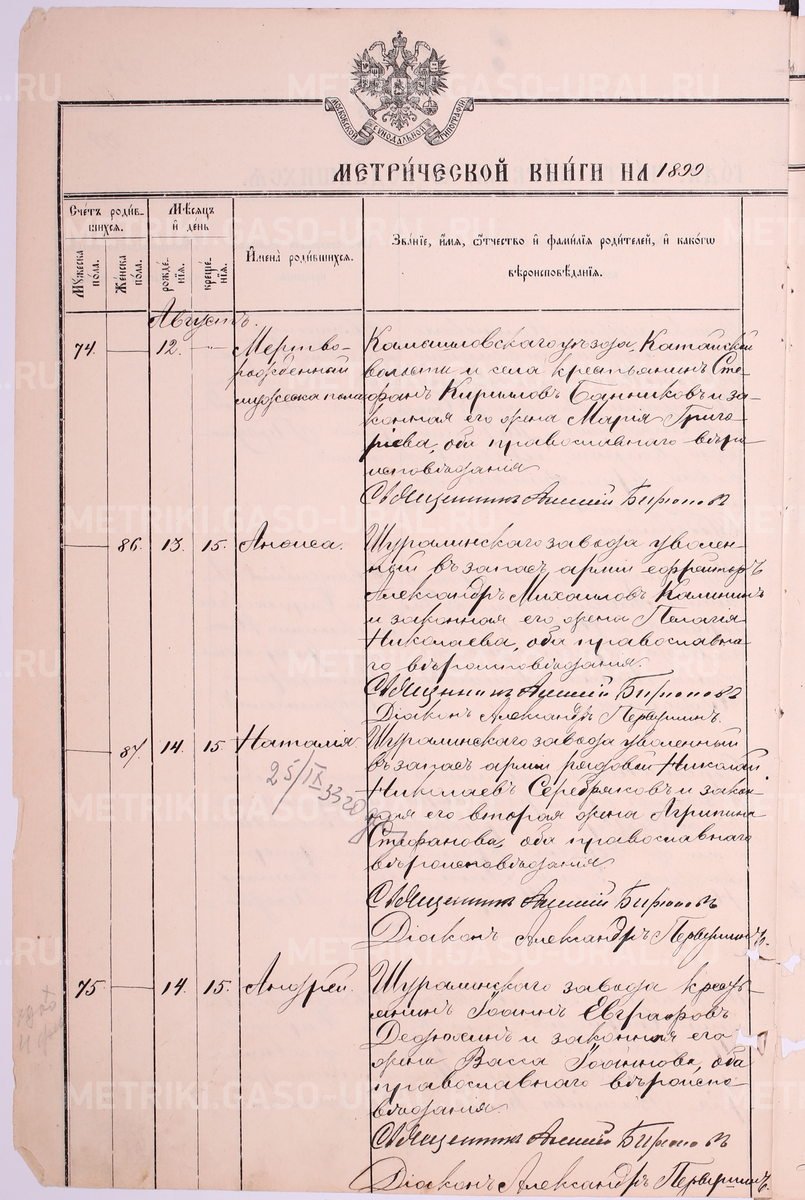 МОСКОВСКОЙ СУНОДАЛЬНОЙ ТИПОГРАФІИ
МЕТРИ́ЧЕСКОЙ КНИ́ГИ НА 1899
Сче́тъ роди́в-
шихся.
Му́жеска по́ла.
Же́нска по́ла.
Мѣ́сяцъ и҆ день
рожде́-
нїѧ.
креще́-
нїѧ.
И҆мена̀ роди́вшихся.
Зва́нїе, и҆́мѧ, ѻ҆́тчество и҆ фамилїѧ роди́телей, и҆ како́гѡ
вѣроисповѣ́данїѧ.
Августъ.
74. 12. Мертво- Камышловскаго уѣзда, Катайской
рожденный волости и села крестьянинъ Сте-
мужеска пола фанъ Кирилловъ Банниковъ и за-
конная его жена Марія Григо-
ріева, оба православнаго вѣро-
исповѣданія
Священникъ Алексій Бирюковъ
86. 13. 15. Аниса. Шуралинскаго завода уволен-
ный въ запасъ арміи ефрейторъ
Александръ Михаиловъ Калининъ
и законная его жена Пелагія
Николаева, оба православна-
го вѣроисповѣданія.
Священникъ Алексій Бирюковъ
Діаконъ Александръ Первушинъ.
87. 14. 15. Наталія Шуралинскаго завода уволенный
въ запасъ арміи рядовой Николай
25/IX 33
Николаевъ Серебряковъ и закон-
ная его вторая жена Агрипина
Стефанова, оба православнаго
вѣроисповѣданія
Священникъ Алексій Бирюковъ
Діаконъ Александръ Первушинъ.
75. 14. 15. Андрей. Шуралинскаго завода кресть-
янинъ Іоаннъ Евграфовъ
Дедюхинъ и законная его
жена Васса Іоаннова, оба
православнаго вѣроиспо-
вѣданія
Священникъ Алексій Бирюковъ
Діаконъ Александръ Первушинъ.
METRIKI.GASO-URAL.RU